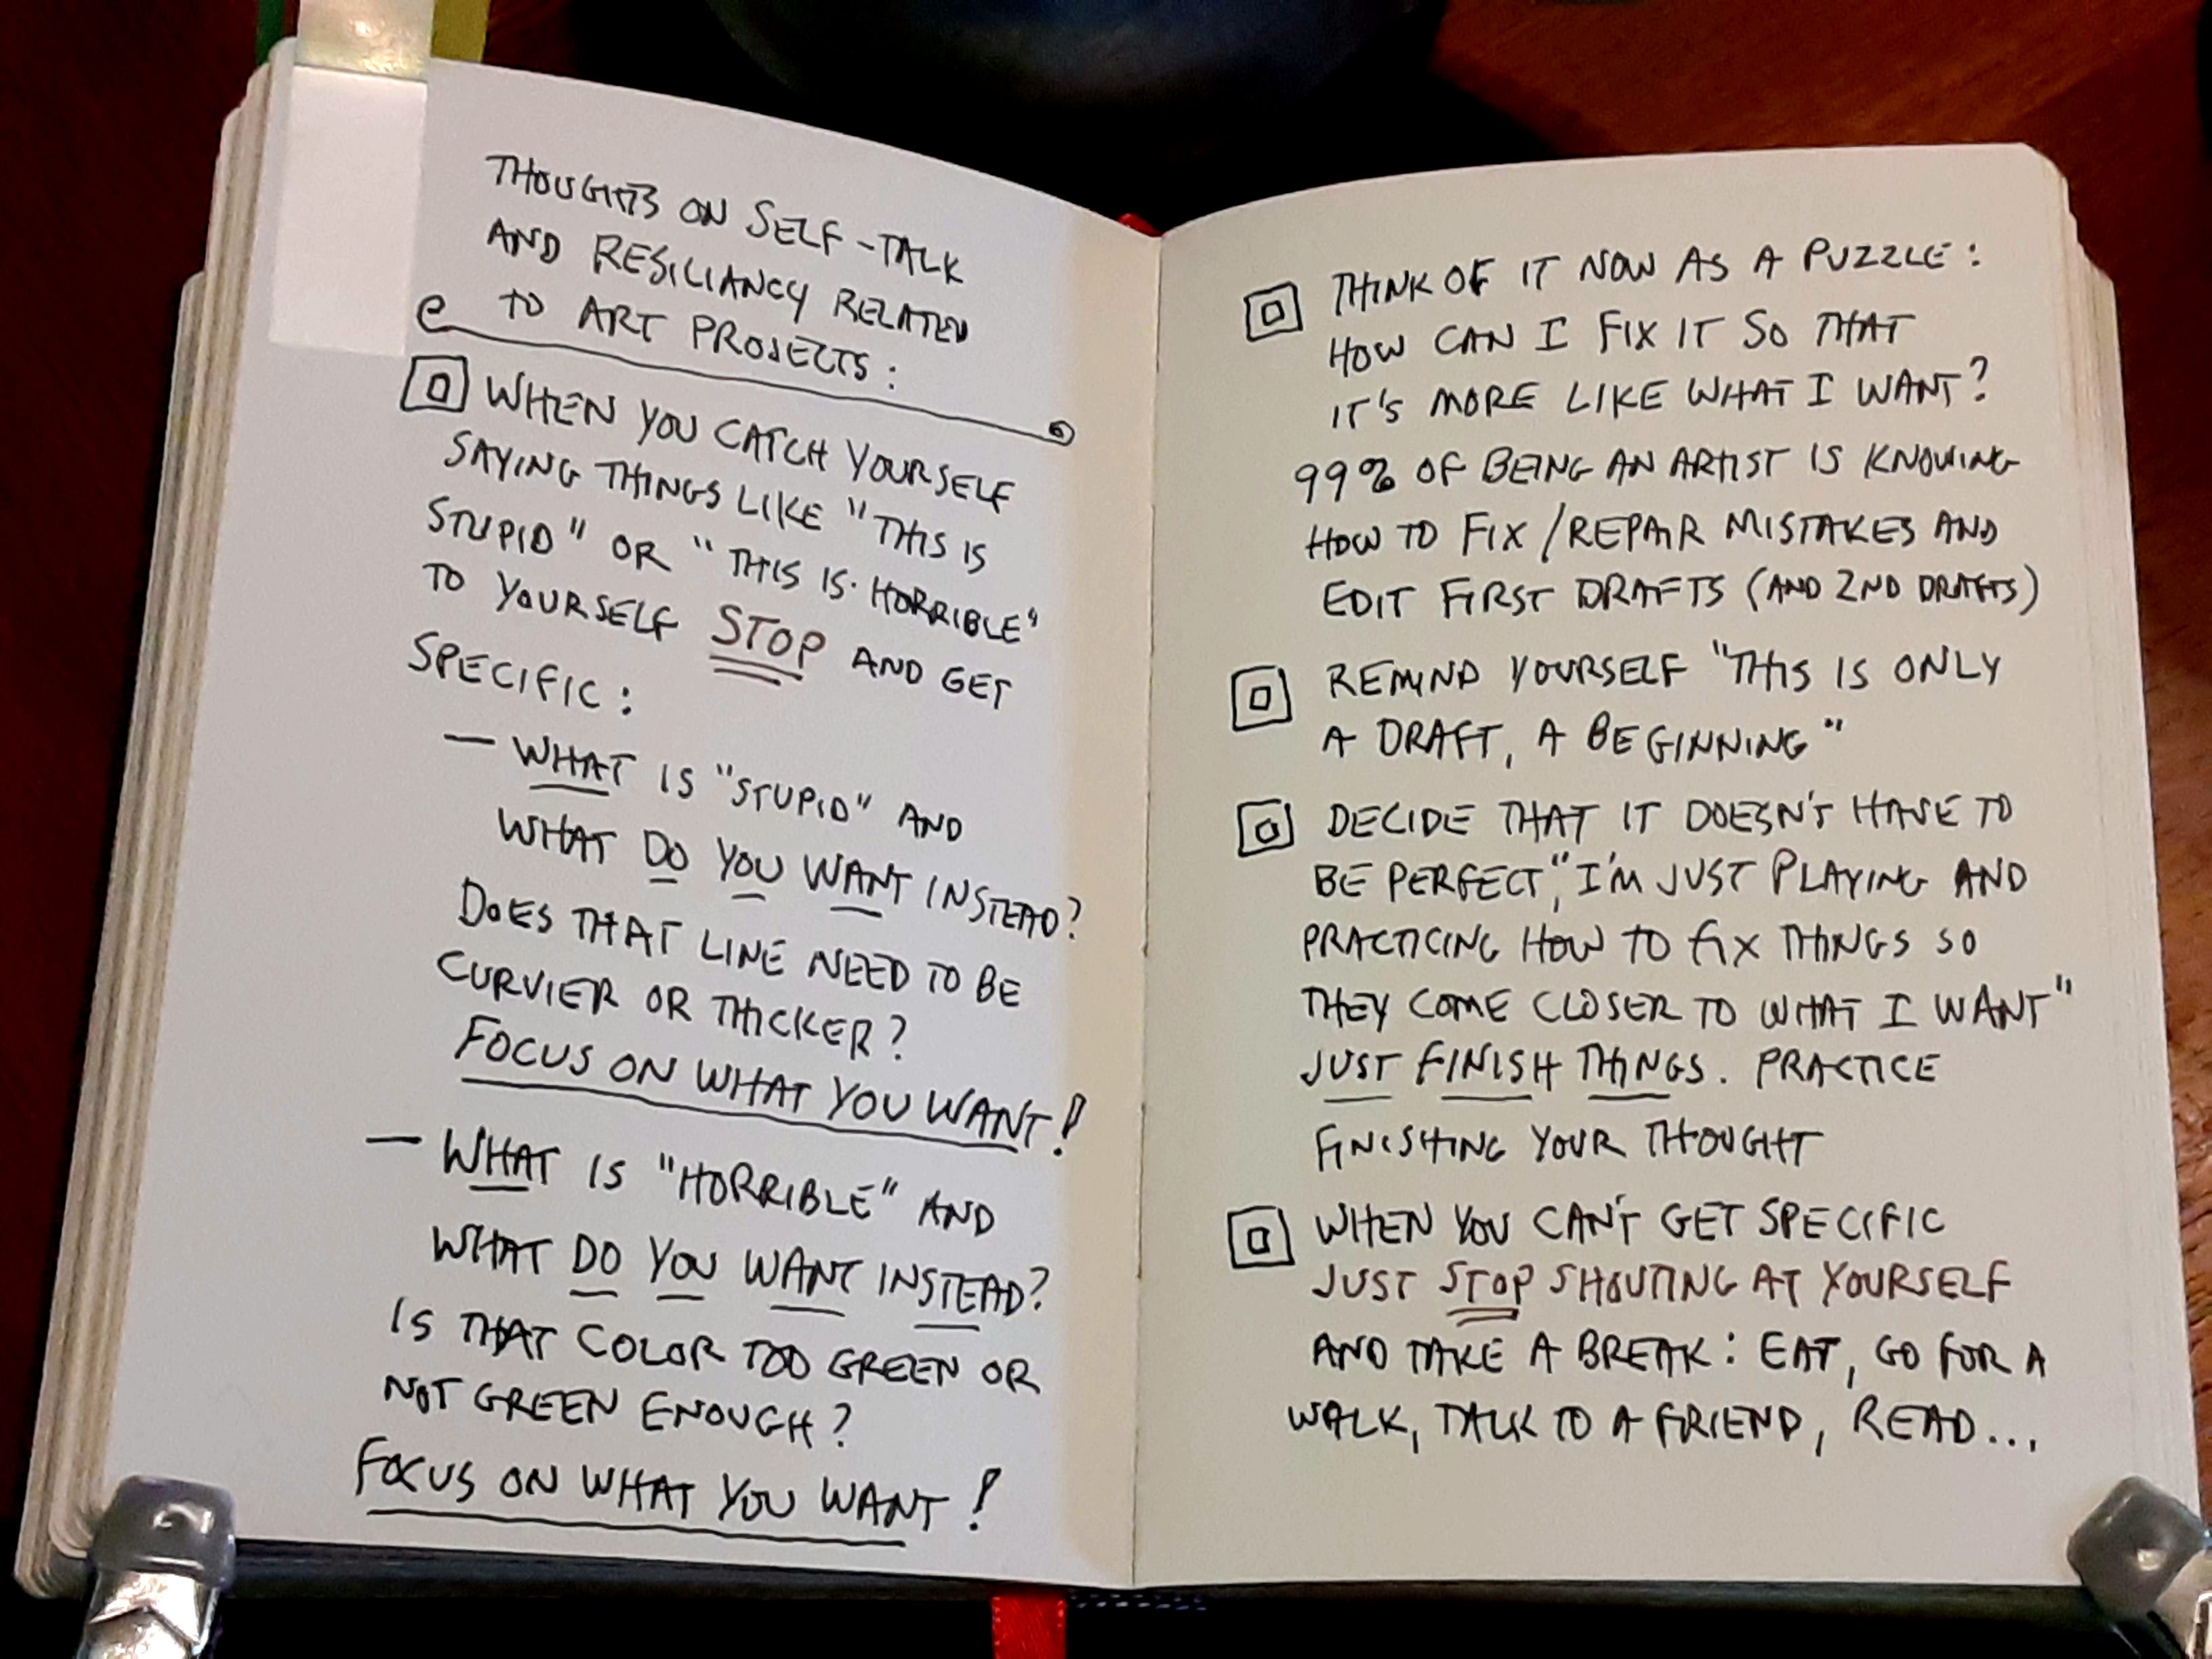 THOUGHTS ON SELF-TALK
AND RESILIANCY RELATED
TO ART PROJECTS:
WHEN YOU CATCH YOURSELF
SAYING THINGS LIKE "THIS IS
STUPID" OR "THIS IS HORRIBLE"
TO YOURSELF STOP AND GET
SPECIFIC:
— WHAT IS "STUPID" AND
WHAT DO YOU WANT INSTEAD?
DOES THAT LINE NEED TO BE
CURVIER OR THICKER?
FOCUS ON WHAT YOU WANT!
— WHAT IS "HORRIBLE" AND
WHAT DO YOU WANT INSTEAD?
IS THAT COLOR TOO GREEN OR
NOT GREEN ENOUGH?
FOCUS ON WHAT YOU WANT!
THINK OF IT NOW AS A PUZZLE:
HOW CAN I FIX IT SO THAT
IT'S MORE LIKE WHAT I WANT?
99% OF BEING AN ARTIST IS KNOWING
HOW TO FIX/REPAIR MISTAKES AND
EDIT FIRST DRAFTS (AND 2ND DRAFTS)
REMIND YOURSELF "THIS IS ONLY
A DRAFT, A BEGINNING"
DECIDE THAT IT DOESN'T HAVE TO
BE PERFECT, "I'M JUST PLAYING AND
PRACTICING HOW TO FIX THINGS SO
THEY COME CLOSER TO WHAT I WANT"
JUST FINISH THINGS. PRACTICE
FINISHING YOUR THOUGHT
WHEN YOU CAN'T GET SPECIFIC
JUST STOP SHOUTING AT YOURSELF
AND TAKE A BREAK: EAT, GO FOR A
WALK, TALK TO A FRIEND, READ...